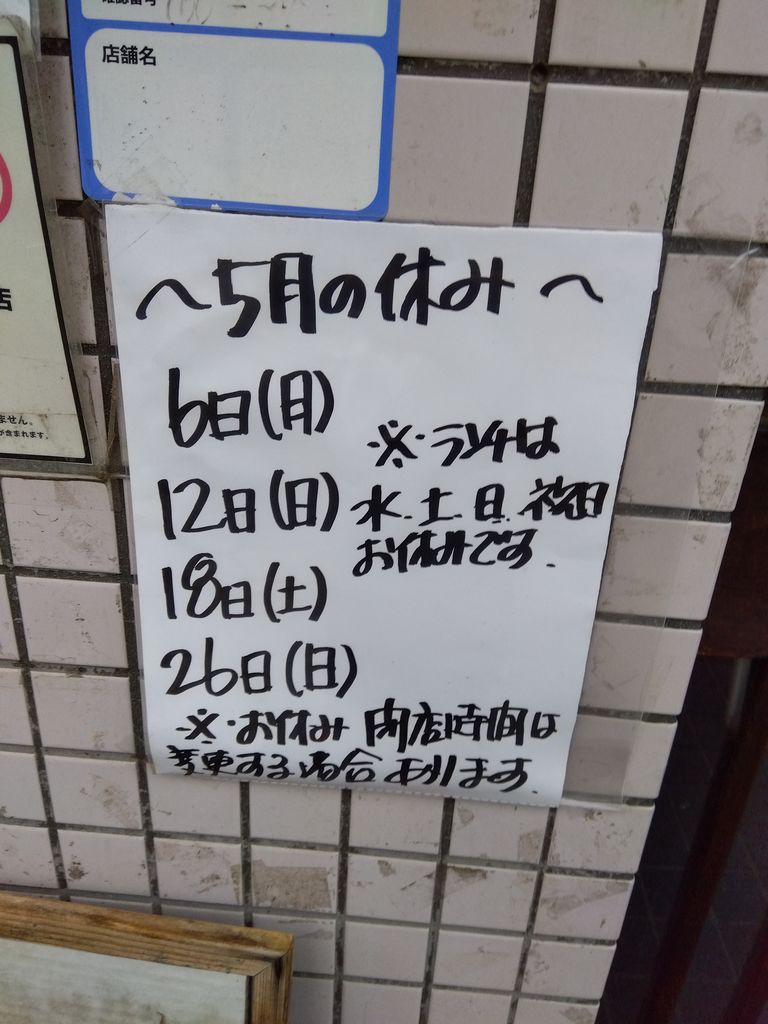 店舗名
〜5月の休み〜
6日(月)
12日(日)
18日(土)
26日(日)
※ランチは
水.土.日.祝日
お休みです.
※お休み 閉店時間は
変更する場合あります.
店
ません。
が含まれます。